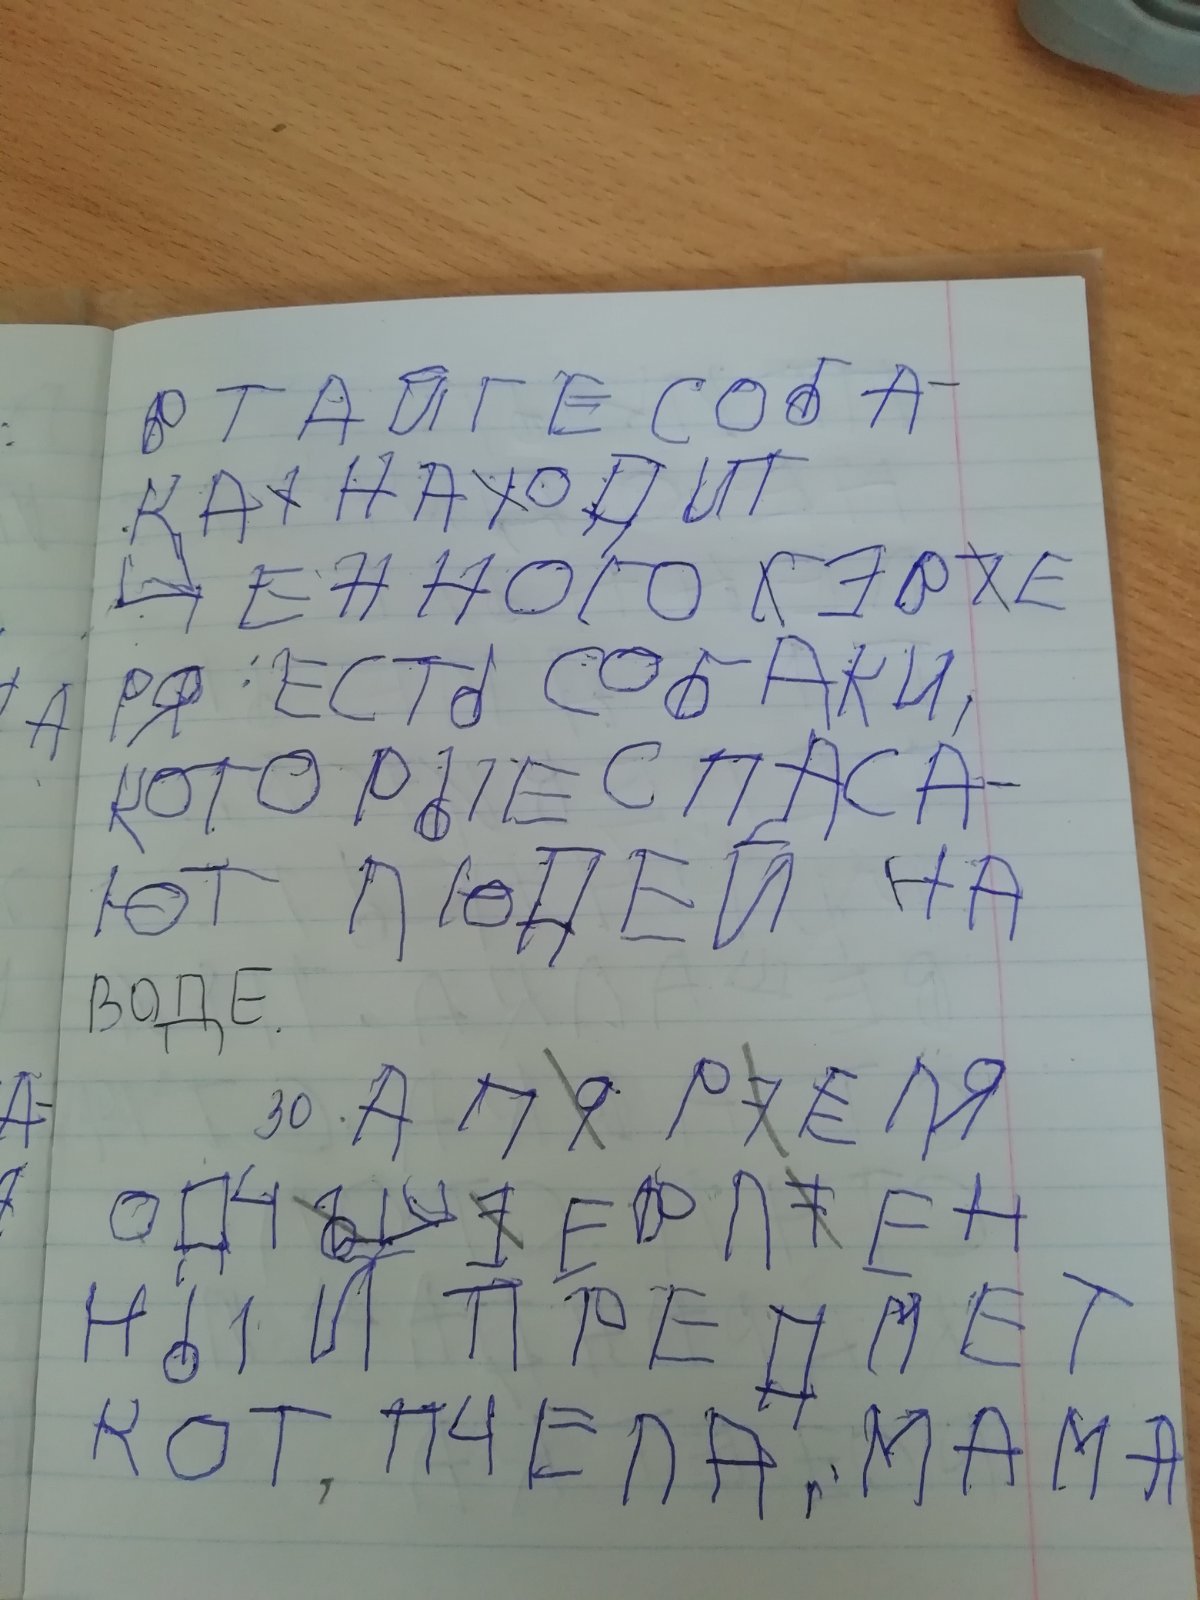 В ТАЙГЕ СОБА-
КАХ НАХОДИТ
ЦЕННОГО КЭВХЕ
РЯ. ЕСТЬ СОБАКИ,
КОТОРЫЕ СПАСА-
ЮТ ЛЮДЕЙ НА
ВОДЕ.
30. АПЯРЕЛЯ
ОДЧ
НЫЙ ПРЕДМЕТ
КОТ, ПЧЕЛА, МАМА